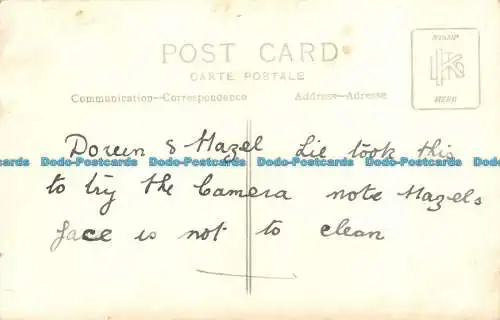 POST CARD
CARTE POSTALE
Communication—Correspondence
Address—Adresse
STAMP
HERE
Doreen & Hazel Lie took this
Dodo-Postcards Dodo-Postcards Dodo-Postcards Dodo-Postcards Dodo-Postcards
to try the Camera note Hazels
face is not to clean